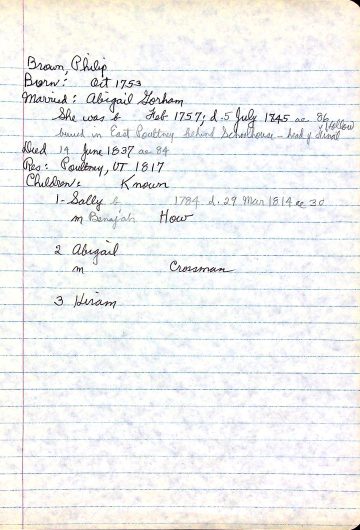 Brown, Philip
Born: Oct 1753
Married: Abigail Gorham
She was b Feb 1757; d. 5 July 1845 ae 86
buried in East Poultney behind Schoolhouse - head of
Died 14 June 1837 ae 84
Res: Poultney, VT 1817
Children: Known
1- Sally b 1784 d. 29 Mar 1814 ae 30
m Benajah How
2 Abigail
m Crossman
3 Hiram